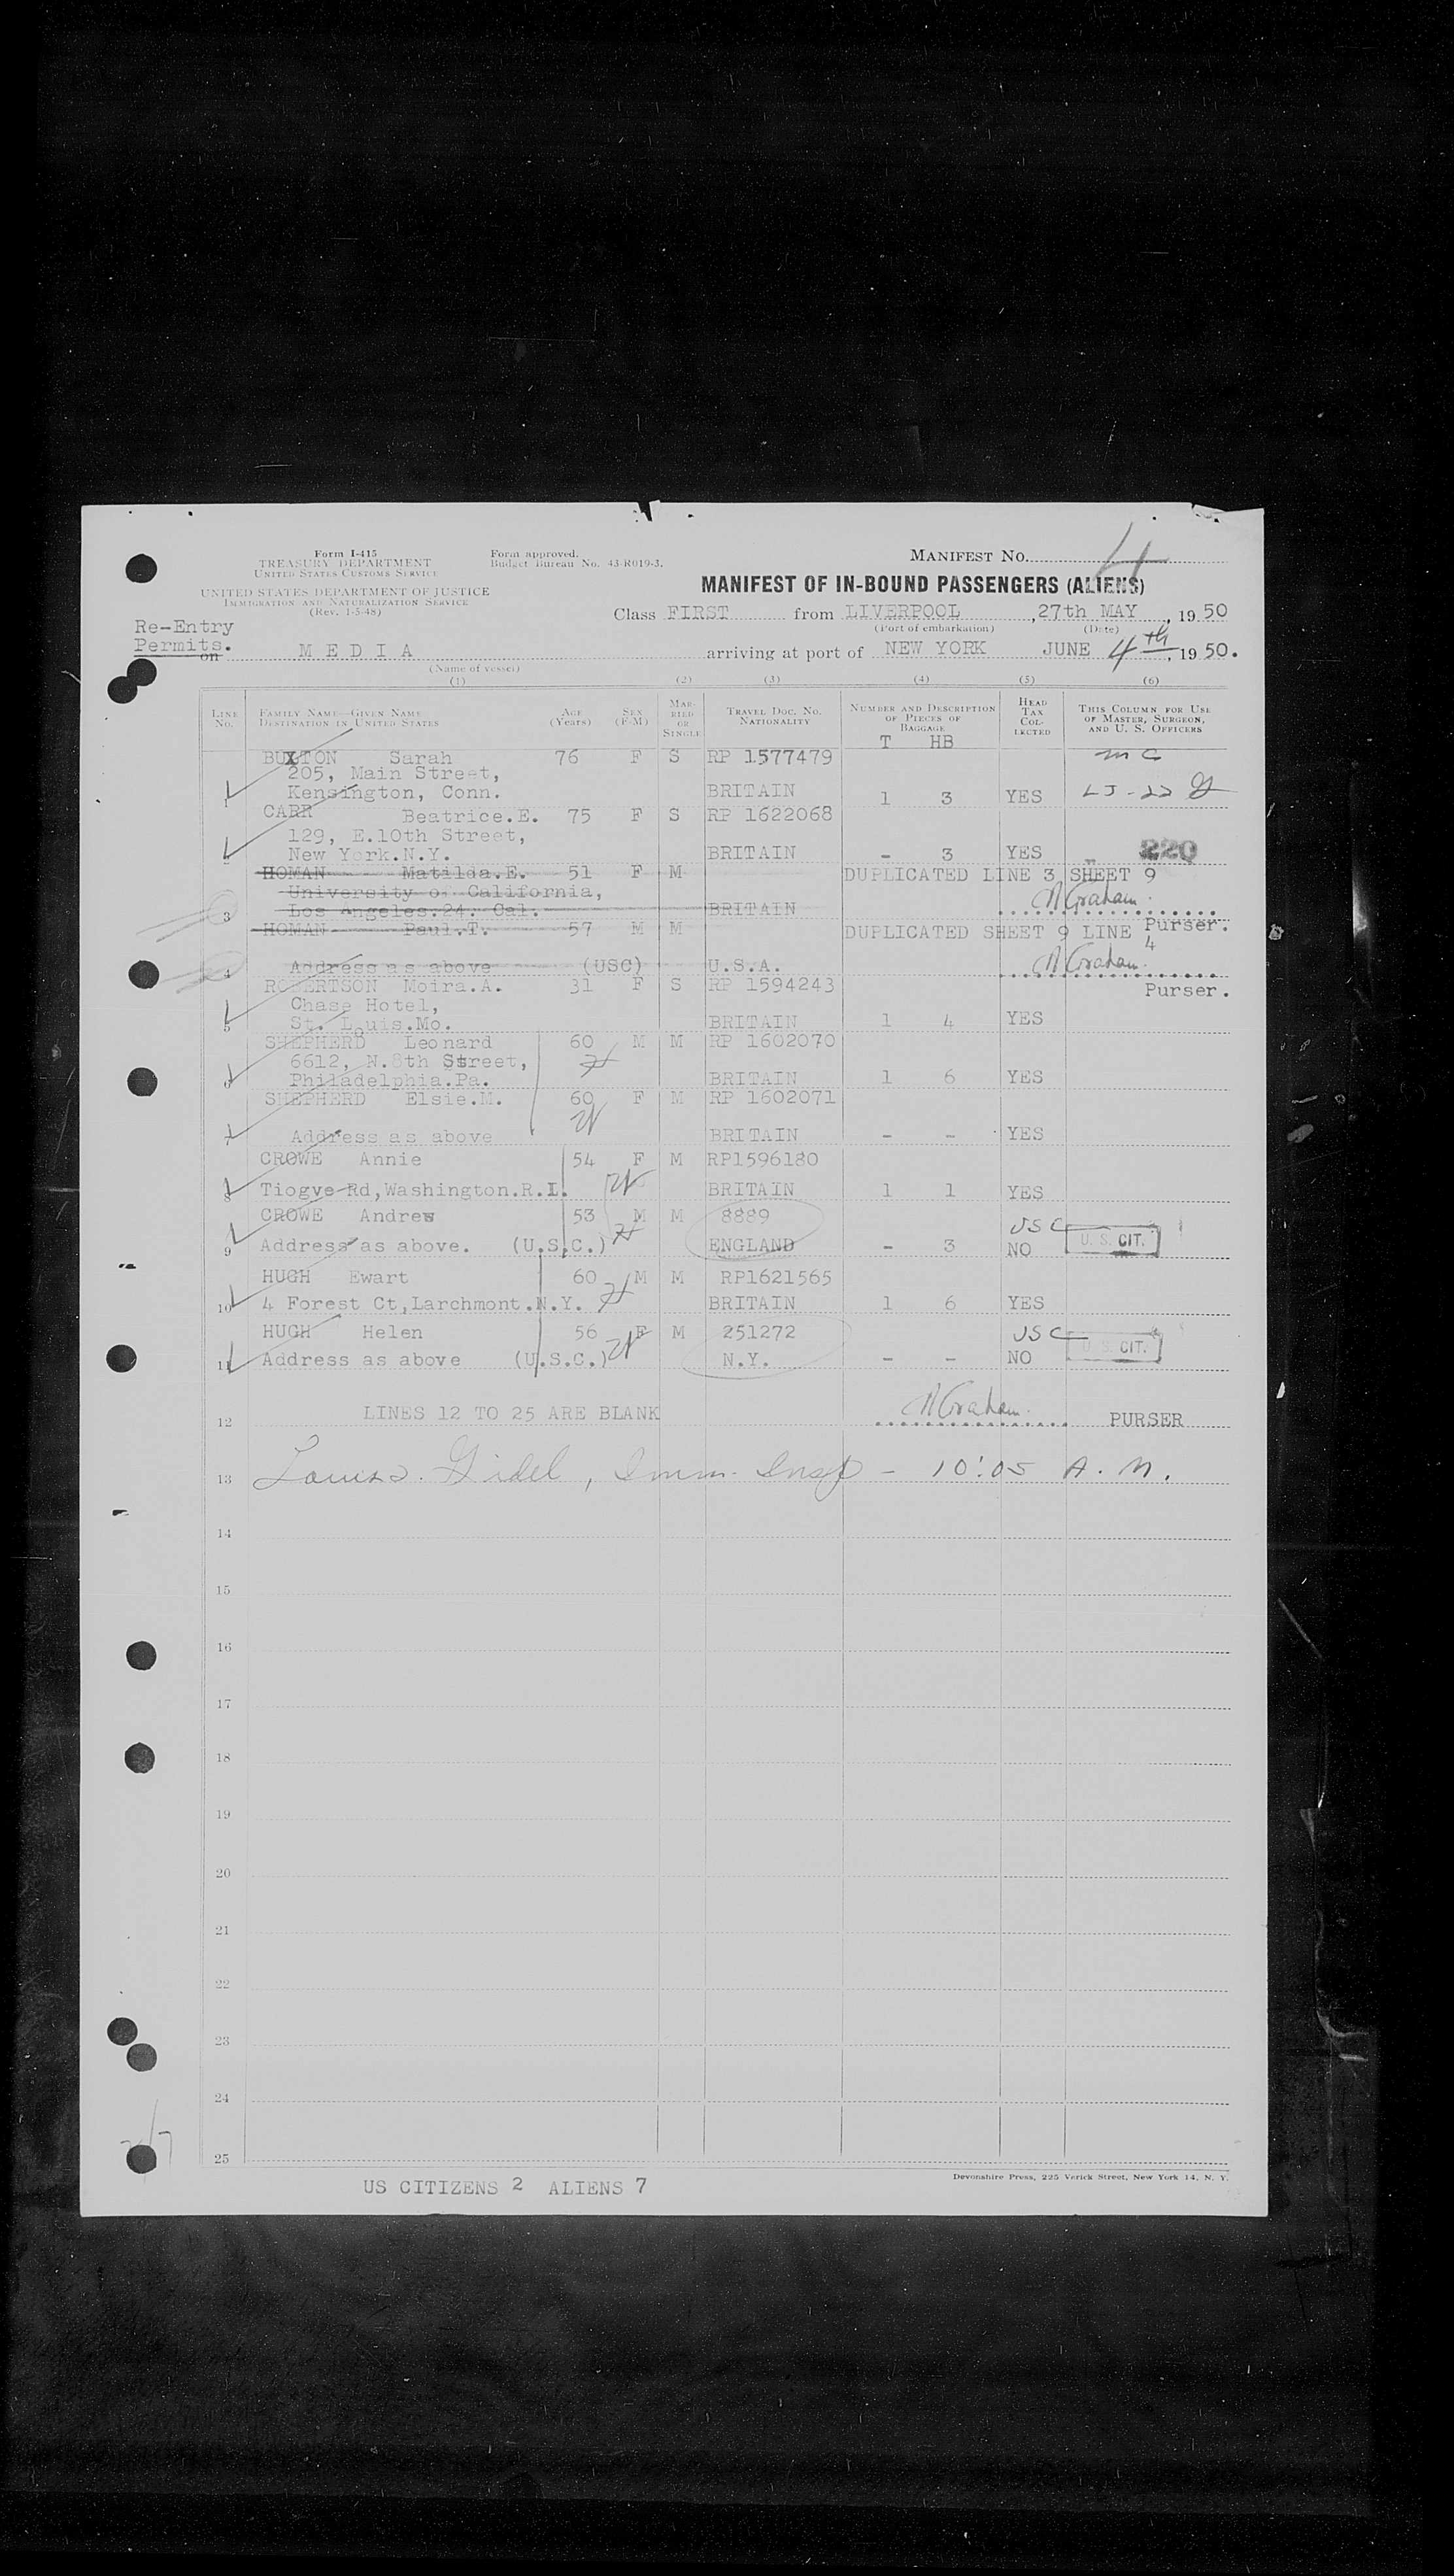 Form I-415
TREASURY DEPARTMENT
UNITED STATES CUSTOMS SERVICE
UNITED STATES DEPARTMENT OF JUSTICE
IMMIGRATION AND NATURALIZATION SERVICE
(Rev. 1-5-48)
Form approved.
Budget Bureau No. 43-R019-3.
MANIFEST NO. 4
MANIFEST OF IN-BOUND PASSENGERS (ALIENS)
Class FIRST from LIVERPOOL, 27th MAY, 1950
(Port of embarkation) (Date)
Re-Entry
Permits.
on MEDIA arriving at port of NEW YORK JUNE 4th, 1950.
(Name of vessel)
(1) (2) (3) (4) (5) (6)
LINE NO. FAMILY NAME—GIVEN NAME DESTINATION IN UNITED STATES AGE (Years) SEX (F-M) MARRIED OR SINGLE TRAVEL DOC. NO. NATIONALITY NUMBER AND DESCRIPTION OF PIECES OF BAGGAGE HEAD TAX COLLECTED THIS COLUMN FOR USE OF MASTER, SURGEON, AND U. S. OFFICERS
T HB
BUXTON Sarah 76 F S RP 1577479 mc
205, Main Street,
1 Kensington, Conn. BRITAIN 1 3 YES LJ-22
CARR Beatrice.E. 75 F S RP 1622068
129, E.10th Street,
2 New York.N.Y. BRITAIN - 3 YES
HOMAN Matilda.E. 51 F M DUPLICATED LINE 3 SHEET 9
University of California,
3 Los Angeles.24. Cal. BRITAIN Graham.
Purser.
HOMAN Paul.T. 57 M M DUPLICATED SHEET 9 LINE 4
4 Address as above (USC) U.S.A. Graham.
Purser.
ROBERTSON Moira.A. 31 F S RP 1594243
Chase Hotel,
5 St. Louis.Mo. BRITAIN 1 4 YES
SHEPHERD Leonard 60 M M RP 1602070
6612, N.8th Street,
6 Philadelphia.Pa. BRITAIN 1 6 YES
SHEPHERD Elsie.M. 60 F M RP 1602071
7 Address as above BRITAIN - - YES
CROWE Annie 54 F M RP1596180
8 Tiogve Rd,Washington.R.I. BRITAIN 1 1 YES
CROWE Andrew 53 M M 8889 USC
9 Address as above. (U.S.C.) ENGLAND - 3 NO U.S. CIT.
HUGH Ewart 60 M M RP1621565
10 4 Forest Ct,Larchmont.N.Y. BRITAIN 1 6 YES
HUGH Helen 56 F M 251272 USC
11 Address as above (U.S.C.) N.Y. - - NO U.S. CIT.
12 LINES 12 TO 25 ARE BLANK Graham. PURSER
13 Louis Gidel, Imm. Insp - 10:05 A.M.
14
15
16
17
18
19
20
21
22
23
24
25
Devonshire Press, 225 Varick Street, New York 14, N. Y.
US CITIZENS 2 ALIENS 7